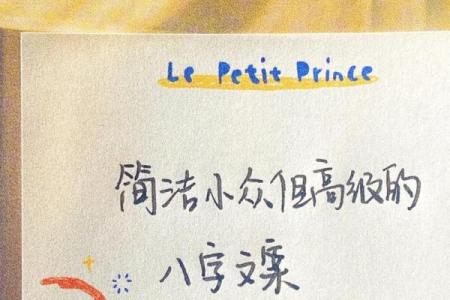 Le Petit Prince
简洁小众但高级的
八字文案